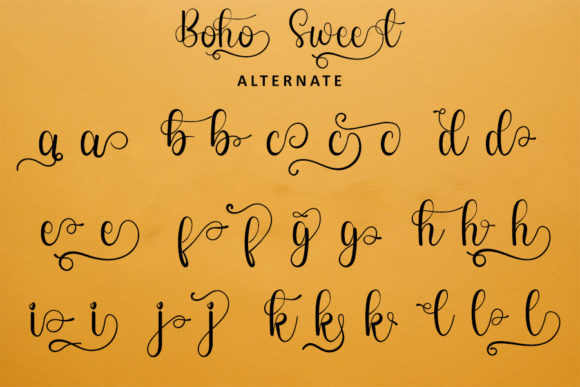 Boho Sweet
ALTERNATE
a a b b c c c d d
e e f f g g h h h
i i j j k k k l l l